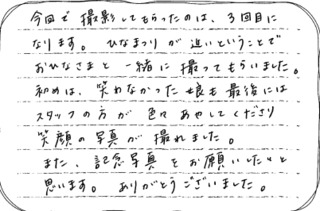 今回で撮影してもらったのは、3回目に
なります。 ひなまつりが近いということで
おひなさまと一緒に撮ってもらいました。
初めは、笑わなかった娘も最後には
スタッフの方が色々あやしてくださり
笑顔の写真が撮れました。
また、記念写真をお願いしたいと
思います。 ありがとうございました。